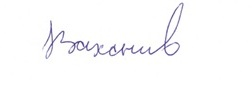 Вахонив